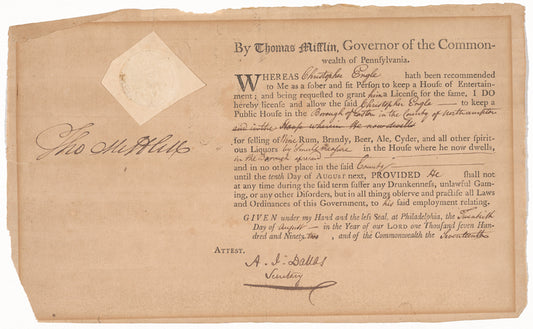 By Thomas Mifflin, Governor of the Common-
wealth of Pennsylvania.
WHEREAS Christopher Engle hath been recommended
to Me as a sober and fit Person to keep a House of Entertain-
ment; and being requested to grant him a License for the same, I DO
hereby license and allow the said Christopher Engle to keep a
Public House in the Borough of Easton in the County of Northampton
and in the House wherein he now dwells
for selling of Wine Rum, Brandy, Beer, Ale, Cyder, and all other spirit-
ous Liquors by Small Measure in the House where he now dwells,
in the Borough aforesaid
and in no other place in the said County
until the tenth Day of AUGUST next, PROVIDED He shall not
at any time during the said term suffer any Drunkenness, unlawful Gam-
ing, or any other Disorders, but in all things observe and practise all Laws
and Ordinances of this Government, to his said employment relating.
GIVEN under my Hand and the less Seal, at Philadelphia, the Twentieth
Day of August in the Year of our LORD one Thousand seven Hun-
dred and Ninety two, and of the Commonwealth the Seventeenth
Tho Mifflin
ATTEST.
A. J. Dallas
Secretary